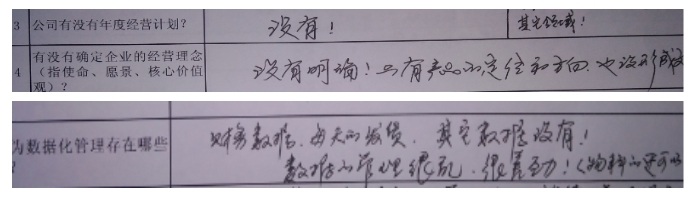 3 公司有没有年度经营计划? 没有! 其它领域!
有没有确定企业的经营理念
4 (指使命、愿景、核心价值 没有明确!只有产品的定位和方向,也没形成
观)?
为数据化管理存在哪些 财务数据、每天的发货、其它数据没有!
数据的管理很乱,很差劲!(物料的还可以